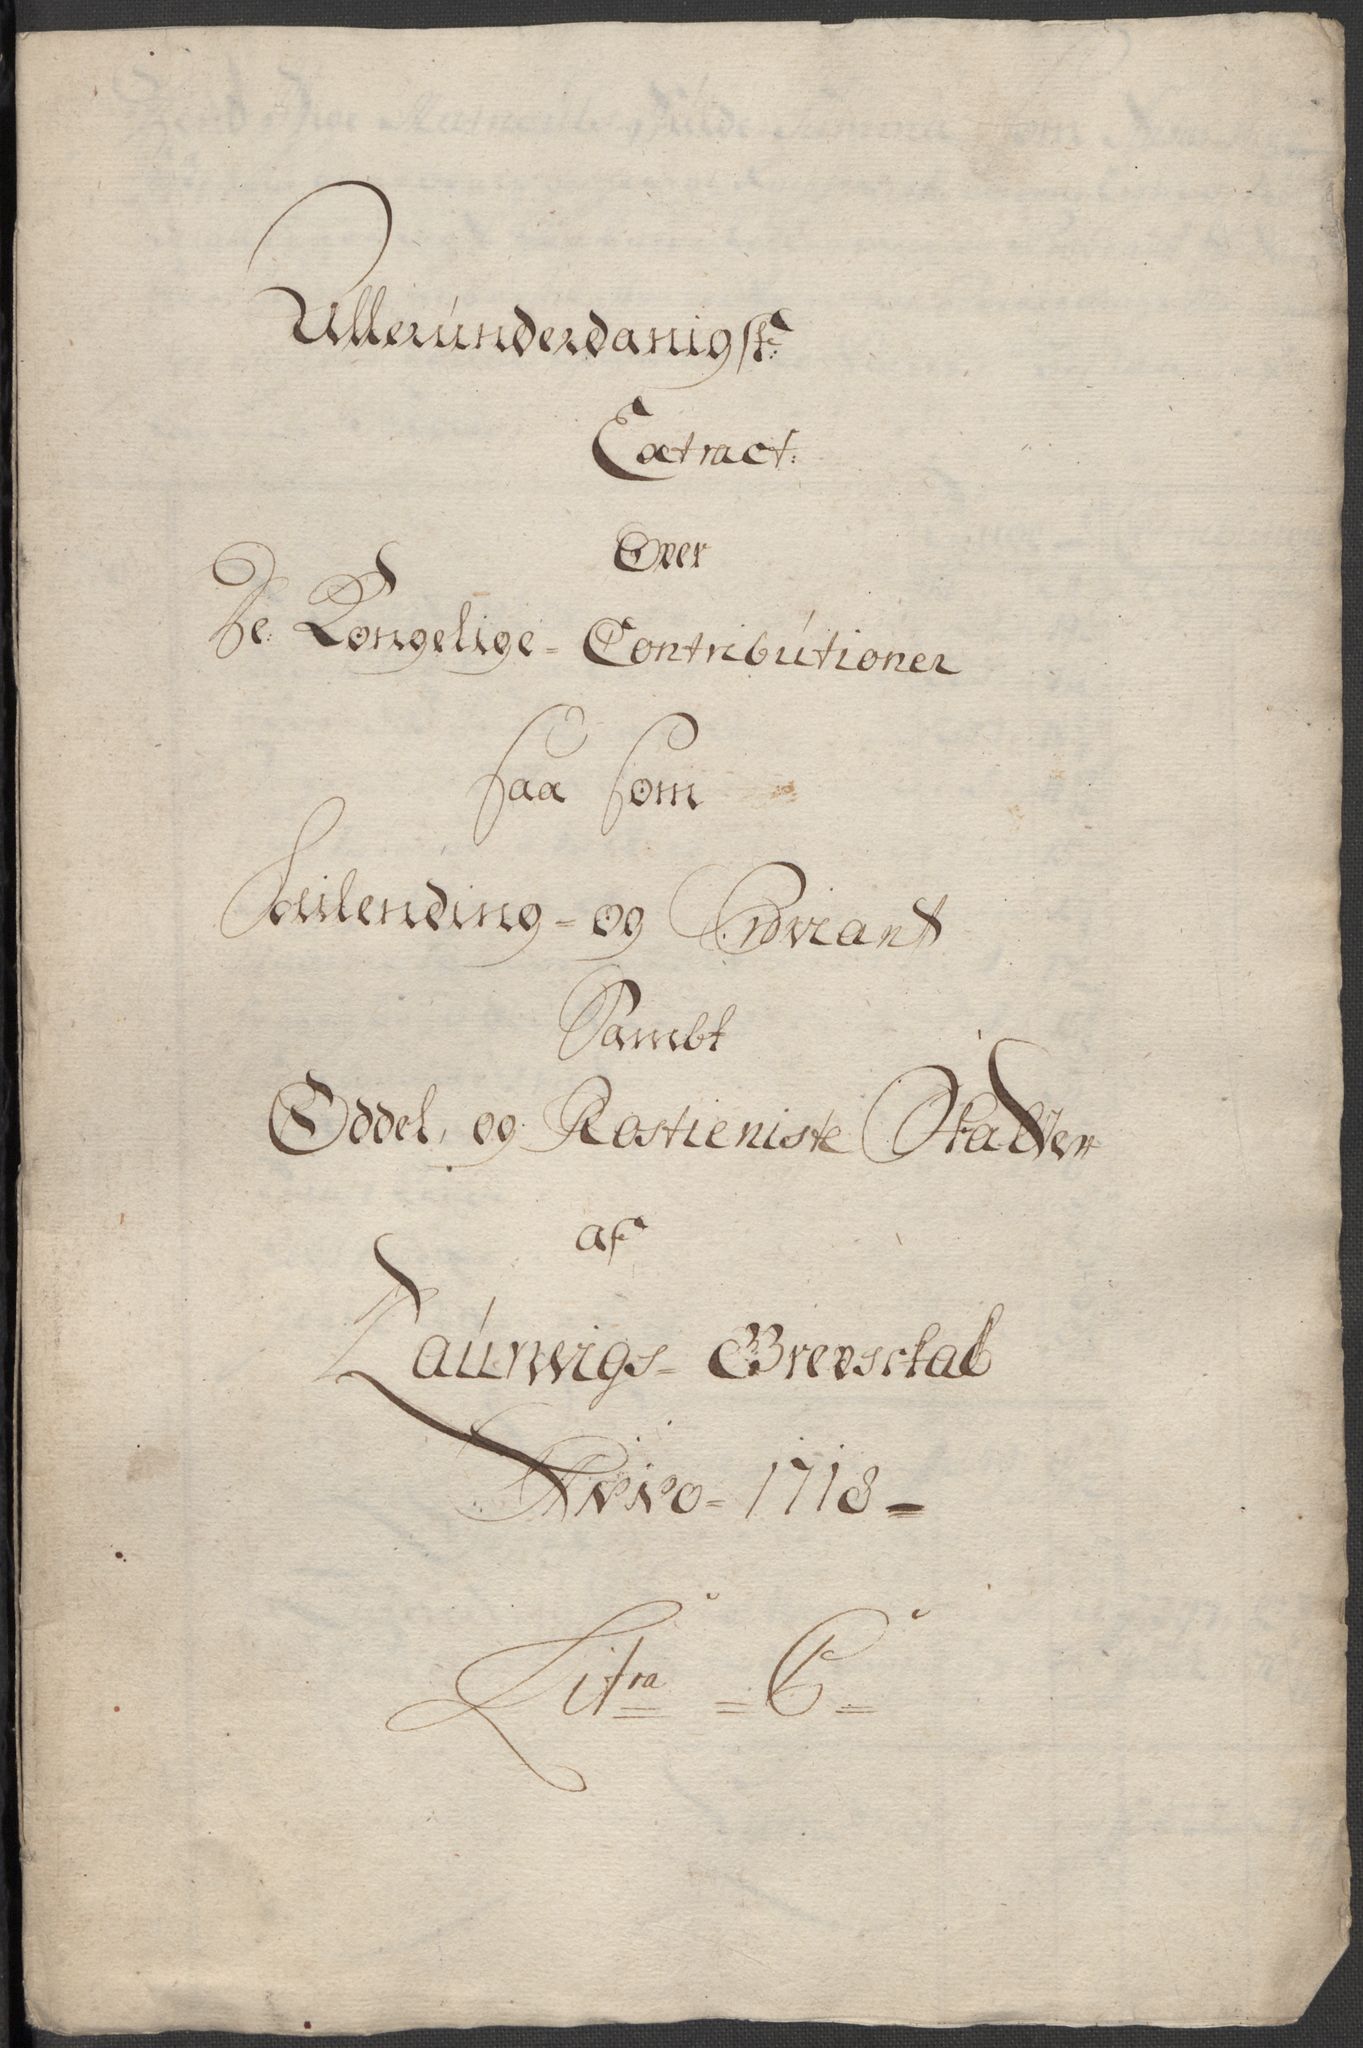 Allerúnderdanigst
Extract:
Over
De Kongelige= Contribútioner
saa som
og Proviant
Sambt
Oddel, og Rostieniste Skatter
af
Laúrwigs= Grevsckab
Anno= 1718=
Litra =C=